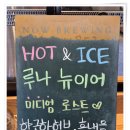 NOW BREWING
HOT & ICE
르나 뉴이어
미디엄 로스트♡